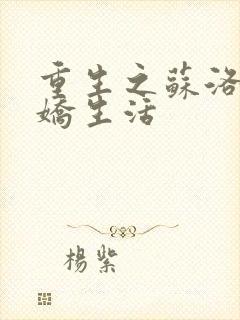 重生之蘇洛
嬌生活
楊紫